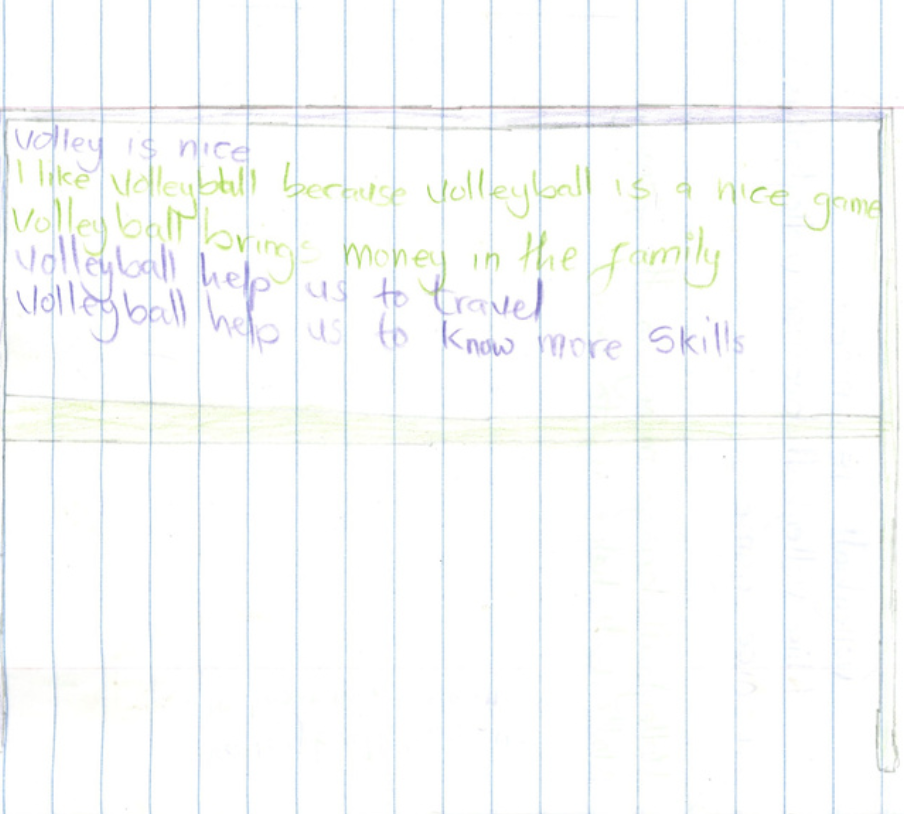 volley is nice
I like Volleyball because volleyball is a nice game
Volleyball brings money in the family
Volleyball help us to travel
Volleyball help us to know more skills